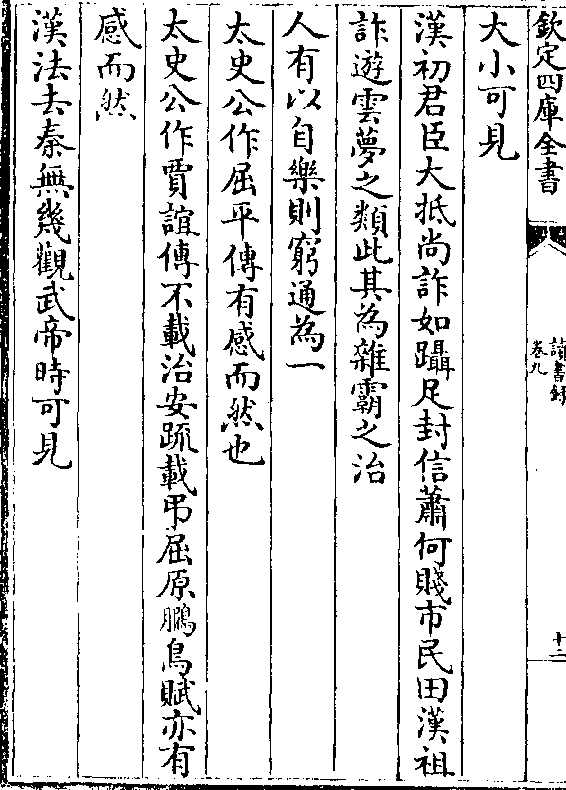 欽定四庫全書
讀書錄
卷九
十二
大小可見
漢初君臣大抵尚詐如躡足封信蕭何賤市民田漢祖
詐遊雲夢之類此其為雜霸之治
人有以自樂則窮通為一
太史公作屈平傳有感而然也
太史公作賈誼傳不載治安䟽載弔屈原鵩鳥賦亦有
感而然
漢法去秦無幾觀武帝時可見